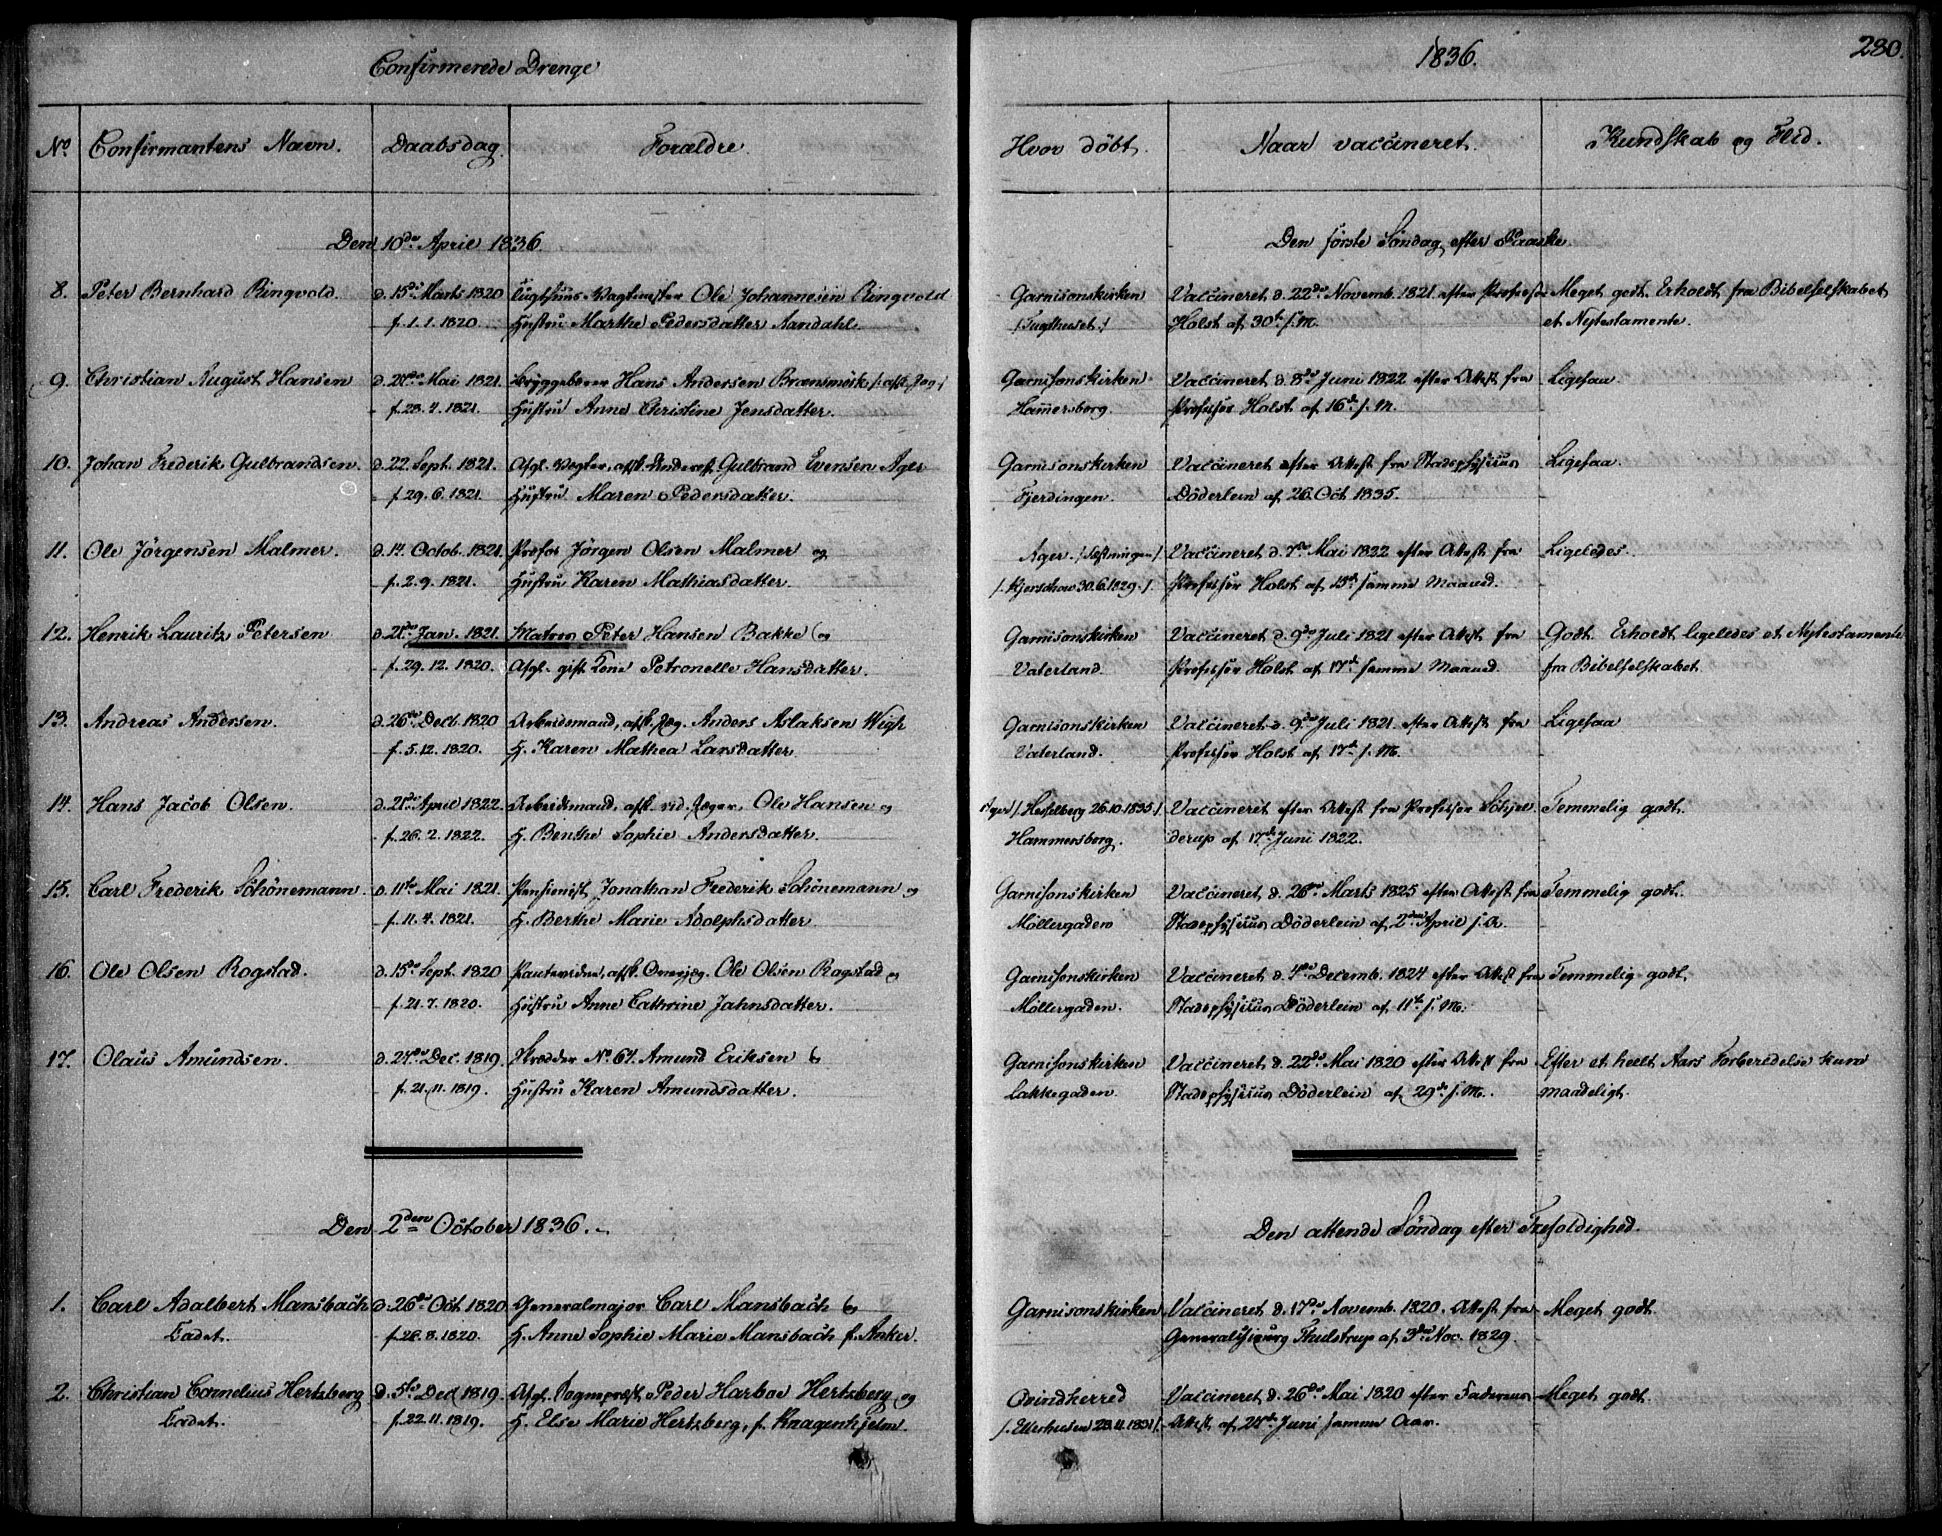 Confirmerede Drenge
1836.
280.
No. Confirmantens Navn. Daabsdag. Forældre. Hvor döbt. Naar vaccineret. Kundskab og Flid.
Den 10de April 1836. Den første Søndag efter Paaske.
8. Peter Bernhard Ringvold. d. 15de Marts 1820 Tugthuus-Vagtmester Ole Johannesen Ringvold Garnisonskirken Vaccineret d. 22de Novemb. 1821 efter Professor Meget godt. Erholdt fra Bibelselskabet
f. 1.1.1820. Hustru Marthe Pedersdatter Aandahl. /Tugthuset./ Holst af 30te s. M. et Nytestamente.
9. Christian August Hansen d. 21de Mai 1821. Bryggeborer Hans Andersen /: afsk. Jæg :/ Garnisonskirken Vaccineret d. 8de Juni 1822 efter Attest fra Ligesaa.
f. 28.4.1821. Hustru Anne Christine Jensdatter. Hammersborg. Professor Holst af 16de s. M.
10. Johan Frederik Gulbrandsen. d. 22. Sept. 1821. Afgl. Vægter, afsk. Underof. Gulbrand Evensen Ager Garnisonskirken Vaccineret efter Attest fra Stadsphysicus Ligesaa.
f. 29.6.1821. Hustru Maren Pedersdatter. Fjerdingen. Döderlein af 26. Oct 1835.
11. Ole Jörgensen Malmer. d. 14. Octob. 1821. Profos Jörgen Olsen Malmer og Ager. /Fæstningen/ Vaccineret d. 7de Mai 1822 efter Attest fra Ligeledes.
f. 2.9.1821. Hustru Karen Mathiasdatter. /. Kjerschow 30.6.1829./. Professor Holst af 15de samme Maaned.
12. Henrik Lauritz Petersen d. 21de Jan. 1821. Matros Peter Hansen Bakke og Garnisonskirken Vaccineret d. 9de Juli 1821 efter Attest fra Godt. Erholdt ligeledes et Nytestamente
f. 29.12.1820. Afgl. gift Kone Petronelle Hansdatter. Vaterland. Professor Holst af 17de samme Maaned. fra Bibelselskabet
13. Andreas Andersen. d. 26de Dect. 1820 Arbeidsmand, afsk. Jæg. Anders Aslaksen Garnisonskirken Vaccineret d. 9de Juli 1821. efter Attest fra Ligesaa
f. 5.12.1820. H. Karen Mathea Larsdatter. Vaterland. Professor Holst af 17de s. M.
14. Hans Jacob Olsen. d. 21de April 1822. Arbeidsmand, afsk. rid. Jæger, Ole Hansen og Ager /. Hesselberg 26.10.1835./ Vaccineret efter Attest fra Professor Sörjen- Temmelig godt.
f. 26.2.1822. H. Benthe Sophie Andersdatter. Hammersborg. derup af 17de Juni 1822.
15. Carl Frederik Schönemann. d. 11te Mai 1821. Pensionist Jonathan Frederik Schönemann og Garnisonskirken Vaccineret d. 26de Marts 1825 efter Attest fra Temmelig godt.
f. 11.4.1821. H. Berthe Marie Adolphsdatter. Möllergaden Stadsphysicus Döderlein af 2den April s. A.
16. Ole Olsen Rogstad. d. 15de Sept. 1820 afsk. Overjæg. Ole Olsen Rogstad og Garnisonskirken Vaccineret d. 4de Decemb. 1824 efter Attest fra Temmelig godt.
f. 21.7.1820. Hustru Anne Cathrine Jahnsdatter. Möllergaden. Stadsphysicus Döderlein af 11te s. M.
17. Olaus Amundsen. d. 27de Dec. 1819. Skrædder No. 64. Amund Eriksen og Garnisonskirken Vaccineret d. 22de Mai 1820 efter Attest fra Efter et heelt Aars Forberedelse kun
f. 21.11.1819. Hustru Karen Amundsdatter. Lakkegaden. Stadsphysicus Döderlein af 29de s. M. maadeligt.
Den 2den October 1836. Den attende Søndag efter Trefoldighed.
1. Carl Adalbert Mansbach d. 26de Oct. 1820 Generalmajor Carl Mansbach og Garnisonskirken Vaccineret d. 17de Novemb. 1820. Attest fra Meget godt.
Cadet. f. 26.8.1820. H. Anne Sophie Marie Mansbach f. Anker. Generalchirurg Thulstrup af 3de Nov. 1829.
2. Christian Cornelius Hertzberg d. 5te Dec 1819. Afgl. Sogneprest Peder Harboe Hertzberg og Qvindherred Vaccineret d. 26de Mai 1820 efter Faderens Meget godt.
Cadet. f. 22.11.1819. H. Else Marie Hertzberg, f. Knagenhjelm. Attest af 21de Juni samme Aar.